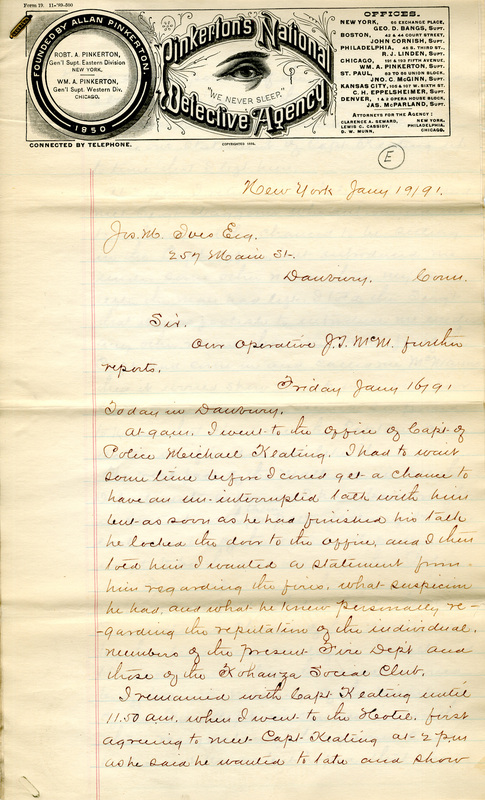 Form 19. 11-'89-500
FOUNDED BY ALLAN PINKERTON.
1850
ROBT. A. PINKERTON,
Gen'l Supt. Eastern Division
NEW YORK.
WM. A. PINKERTON,
Gen'l Supt. Western Div.
CHICAGO.
CONNECTED BY TELEPHONE.
Pinkerton's National
"WE NEVER SLEEP."
Detective Agency
OFFICES.
NEW YORK, 66 EXCHANGE PLACE,
GEO. D. BANGS, SUPT.
BOSTON, 42 & 43 COURT STREET,
JOHN CORNISH, SUPT.
PHILADELPHIA, 45 S. THIRD ST.,
R. J. LINDEN, SUPT.
CHICAGO, 191 & 193 FIFTH AVENUE,
WM. A. PINKERTON, SUPT.
ST. PAUL, 85 TO 86 UNION BLOCK,
JNO. C. McGINN, SUPT.
KANSAS CITY, 105 & 107 W. SIXTH ST.
C. H. EPPELSHEIMER, SUPT.
DENVER, 1 & 2 OPERA HOUSE BLOCK,
JAS. McPARLAND, SUPT.
ATTORNEYS FOR THE AGENCY:
CLARENCE A. SEWARD, NEW YORK.
LEWIS C. CASSIDY, PHILADELPHIA.
D. W. MUNN, CHICAGO.
E
New York Jany 19/91.
Jos. M. Ives Esq.
257 Main St.
Danbury. Conn.
Sir.
Our Operative J.T. McM. further
reports.
Friday Jany 16/91
Today in Danbury.
At 9 a.m. I went to the office of Capt of
Police Michael Keating. I had to wait
some time before I could get a chance to
have an un-interrupted talk with him
but as soon as he had finished his talk
he locked the door to the office, and I then
told him I wanted a statement from
him regarding the fires. what suspicion
he had, and what he knew personally re-
-garding the reputation of the individual
members of the present Fire Dept and
those of the Kohanza Social Club.
I remained with Capt Keating until
11.50 a.m. when I went to the Hotel. first
agreeing to meet Capt Keating at 2 p.m
as he said he wanted to talk and show